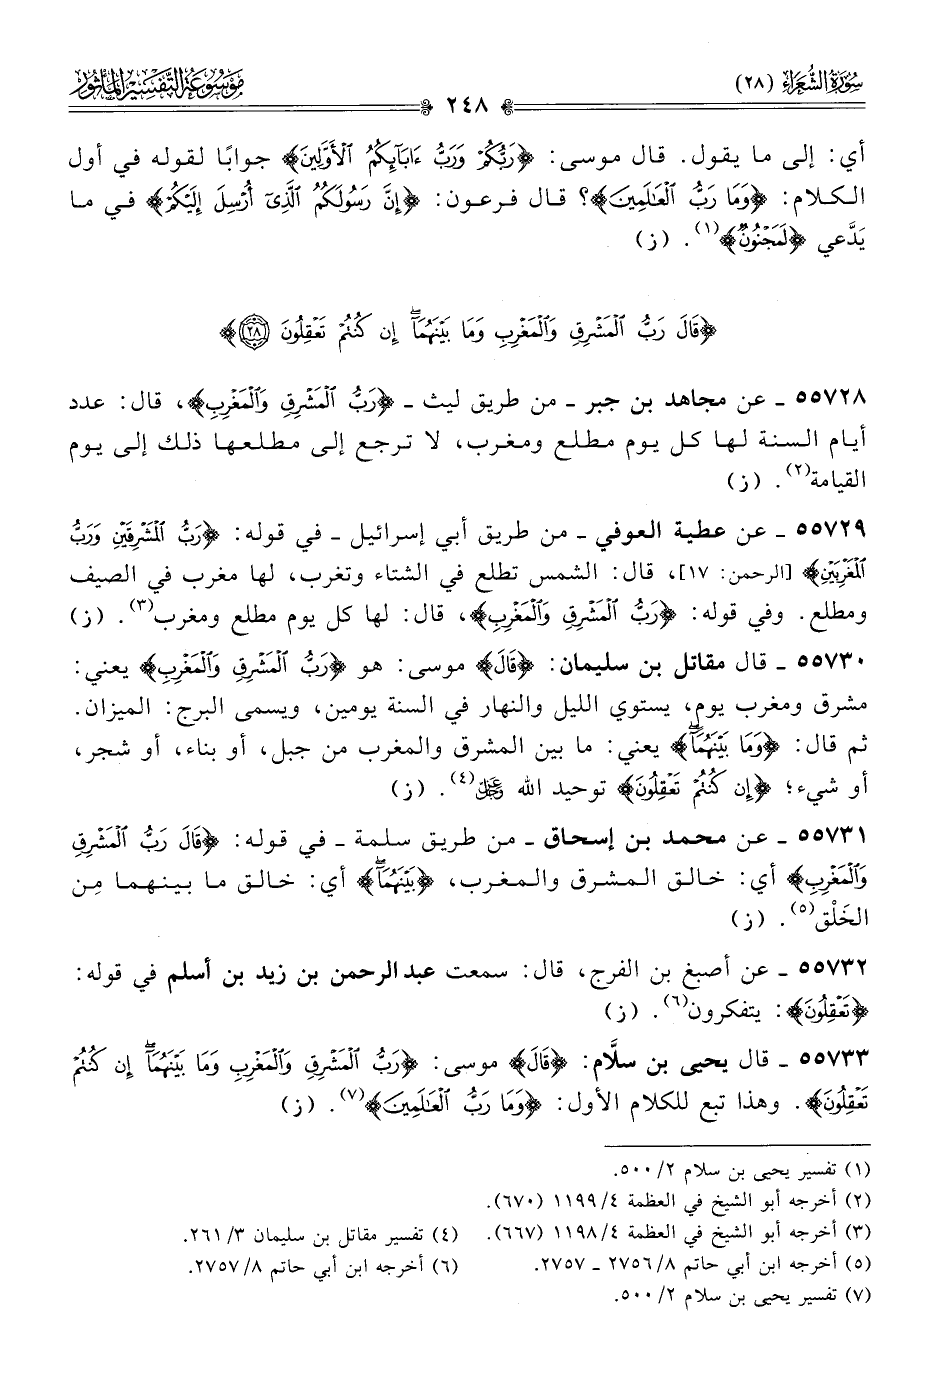 سورة الشعراء (٢٨)
٢٤٨
موسوعة التفسير المأثور
أي: إلى ما يقول. قال موسى: ﴿رَبُّكُمْ وَرَبُّ ءَابَآئِكُمُ ٱلْأَوَّلِينَ﴾ جوابًا لقوله في أول
الكلام: ﴿وَمَا رَبُّ ٱلْعَٰلَمِينَ﴾؟ قال فرعون: ﴿إِنَّ رَسُولَكُمُ ٱلَّذِىٓ أُرْسِلَ إِلَيْكُمْ﴾ في ما
يَدَّعي ﴿لَمَجْنُونٌ﴾(١). (ز)
﴿قَالَ رَبُّ ٱلْمَشْرِقِ وَٱلْمَغْرِبِ وَمَا بَيْنَهُمَآ ۖ إِن كُنتُمْ تَعْقِلُونَ ۝٢٨﴾
٥٥٧٢٨ ـ عن مجاهد بن جبر ـ من طريق ليث ـ ﴿رَبُّ ٱلْمَشْرِقِ وَٱلْمَغْرِبِ﴾، قال: عدد
أيام السنة لها كل يوم مطلع ومغرب، لا ترجع إلى مطلعها ذلك إلى يوم
القيامة(٢). (ز)
٥٥٧٢٩ ـ عن عطية العوفي ـ من طريق أبي إسرائيل ـ في قوله: ﴿رَبُّ ٱلْمَشْرِقَيْنِ وَرَبُّ
ٱلْمَغْرِبَيْنِ﴾ [الرحمن: ١٧]، قال: الشمس تطلع في الشتاء وتغرب، لها مغرب في الصيف
ومطلع. وفي قوله: ﴿رَبُّ ٱلْمَشْرِقِ وَٱلْمَغْرِبِ﴾، قال: لها كل يوم مطلع ومغرب(٣). (ز)
٥٥٧٣٠ ـ قال مقاتل بن سليمان: ﴿قَالَ﴾ موسى: هو ﴿رَبُّ ٱلْمَشْرِقِ وَٱلْمَغْرِبِ﴾ يعني:
مشرق ومغرب يوم، يستوي الليل والنهار في السنة يومين، ويسمى البرج: الميزان.
ثم قال: ﴿وَمَا بَيْنَهُمَآ ۖ﴾ يعني: ما بين المشرق والمغرب من جبل، أو بناء، أو شجر،
أو شيء؛ ﴿إِن كُنتُمْ تَعْقِلُونَ﴾ توحيد الله ﷿(٤). (ز)
٥٥٧٣١ ـ عن محمد بن إسحاق ـ من طريق سلمة ـ في قوله: ﴿قَالَ رَبُّ ٱلْمَشْرِقِ
وَٱلْمَغْرِبِ﴾ أي: خالق المشرق والمغرب، ﴿بَيْنَهُمَآ ۖ﴾ أي: خالق ما بينهما مِن
الخَلْق(٥). (ز)
٥٥٧٣٢ ـ عن أصبغ بن الفرج، قال: سمعت عبد الرحمن بن زيد بن أسلم في قوله:
﴿تَعْقِلُونَ﴾: يتفكرون(٦). (ز)
٥٥٧٣٣ ـ قال يحيى بن سلَّام: ﴿قَالَ﴾ موسى: ﴿رَبُّ ٱلْمَشْرِقِ وَٱلْمَغْرِبِ وَمَا بَيْنَهُمَآ ۖ إِن كُنتُمْ
تَعْقِلُونَ﴾. وهذا تبع للكلام الأول: ﴿وَمَا رَبُّ ٱلْعَٰلَمِينَ﴾(٧). (ز)
(١) تفسير يحيى بن سلام ٢/ ٥٠٠.
(٢) أخرجه أبو الشيخ في العظمة ٤/ ١١٩٩ (٦٧٠).
(٣) أخرجه أبو الشيخ في العظمة ٤/ ١١٩٨ (٦٦٧). (٤) تفسير مقاتل بن سليمان ٣/ ٢٦١.
(٥) أخرجه ابن أبي حاتم ٨/ ٢٧٥٦ ـ ٢٧٥٧. (٦) أخرجه ابن أبي حاتم ٨/ ٢٧٥٧.
(٧) تفسير يحيى بن سلام ٢/ ٥٠٠.